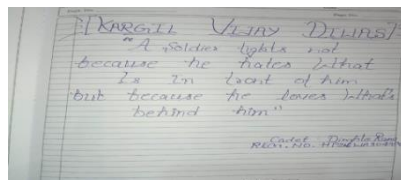 KARGIL VIJAY DIWAS
"A Soldier fights not
because he hates what
Is In front of him
but because he loves what's
behind him"
Cadet
REGM. NO.